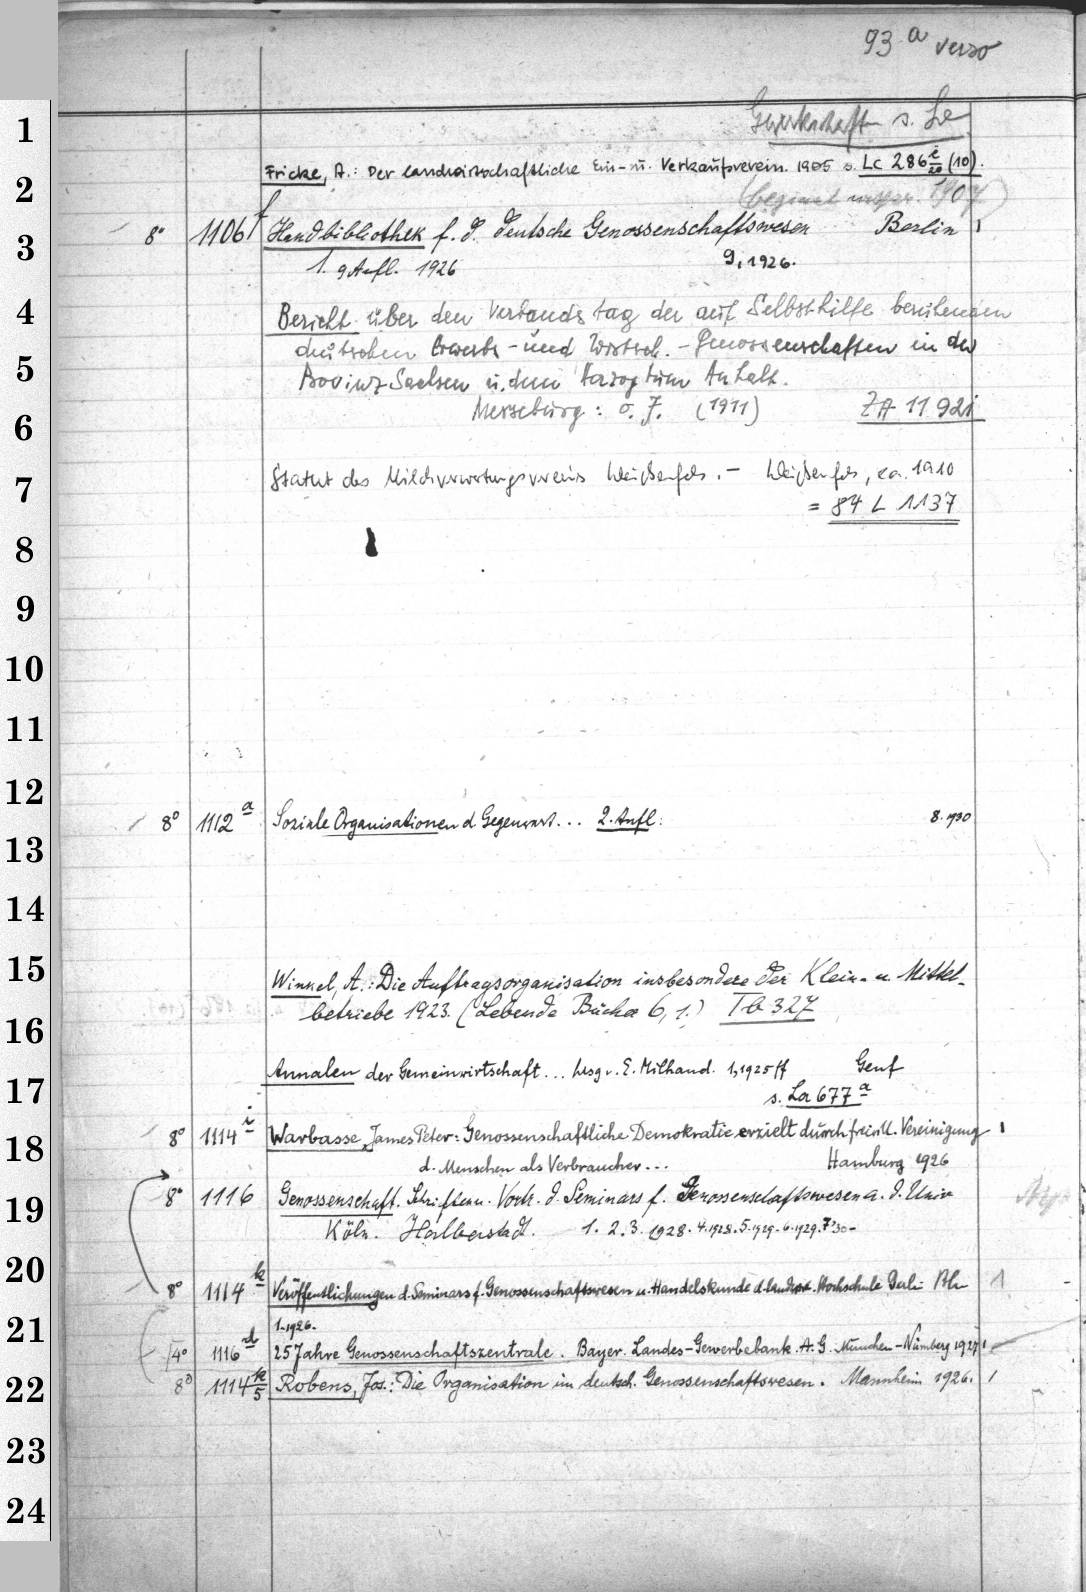 93 a verso
1
Gewerkschaft s. Le
Fricke, A.: Der landwirtschaftliche Ein- u. Verkaufsverein. 1905 s. Lc 286 i/20 (10).
2
1907)
8° 1106 f Handbibliothek f. d. deutsche Genossenschaftswesen Berlin 1
3
1. 9 Aufl. 1926 9, 1926.
4
Bericht über den Verbandstag der auf Selbsthilfe beruhenden
deutschen Erwerbs- und Wirtsch.-Genossenschaften in der
5
Provinz Sachsen u. dem Herzogtum Anhalt.
Merseburg: o. J. (1911) ZA 1192i
6
Statut des Milchverwertungsvereins Weißenfels. – Weißenfels, ca. 1910
7
= 84 L 1137
8
9
10
11
12
8° 1112 a Soziale Organisationen d Gegenwart... 2. Aufl: 8. 1930
13
14
15
Winkel, A.: Die Auftragsorganisation insbesondere der Klein- u. Mittel-
betriebe 1923. (Lebende Bücher 6, 1.) Tb 327
16
Annalen der Gemeinwirtschaft... hrsg v. E. Milhaud. 1, 1925 ff Genf
17
s. La 677 a
8° 1114 i Warbasse, James Peter: Genossenschaftliche Demokratie erzielt durch freiwill. Vereinigung 1
18
d. Menschen als Verbraucher... Hamburg 1926
8° 1116 Genossenschaft. Schriften u. Vortr. d. Seminars f. Genossenschaftswesen a. d. Univ
19
Köln. Halberstadt. 1. 2. 3. 1928. 4. 1928. 5. 1929. 6. 1929. 7. 30 -
20
8° 1114 k Veröffentlichungen d. Seminars f. Genossenschaftswesen u. Handelskunde d. landw. Hochschule Berlin Bln 1
1. 1926.
21
4° 1116 d 25 Jahre Genossenschaftszentrale. Bayer. Landes-Gewerbebank. A. G. München-Nürnberg 1927 1
22
8° 1114 k/5 Robens, Jos.: Die Organisation im deutsch. Genossenschaftswesen. Mannheim 1926. 1
23
24